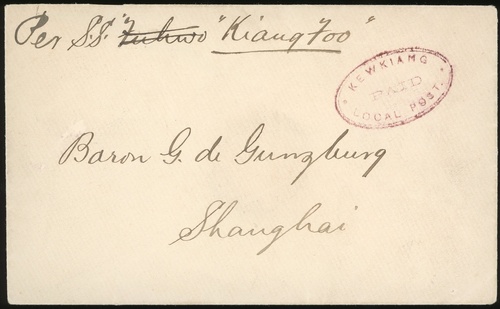 Per S.S. "Tuhwo "Kiang Foo"
KEWKIAMG
PAID
LOCAL POST.
Baron G. de Gunzburg
Shanghai